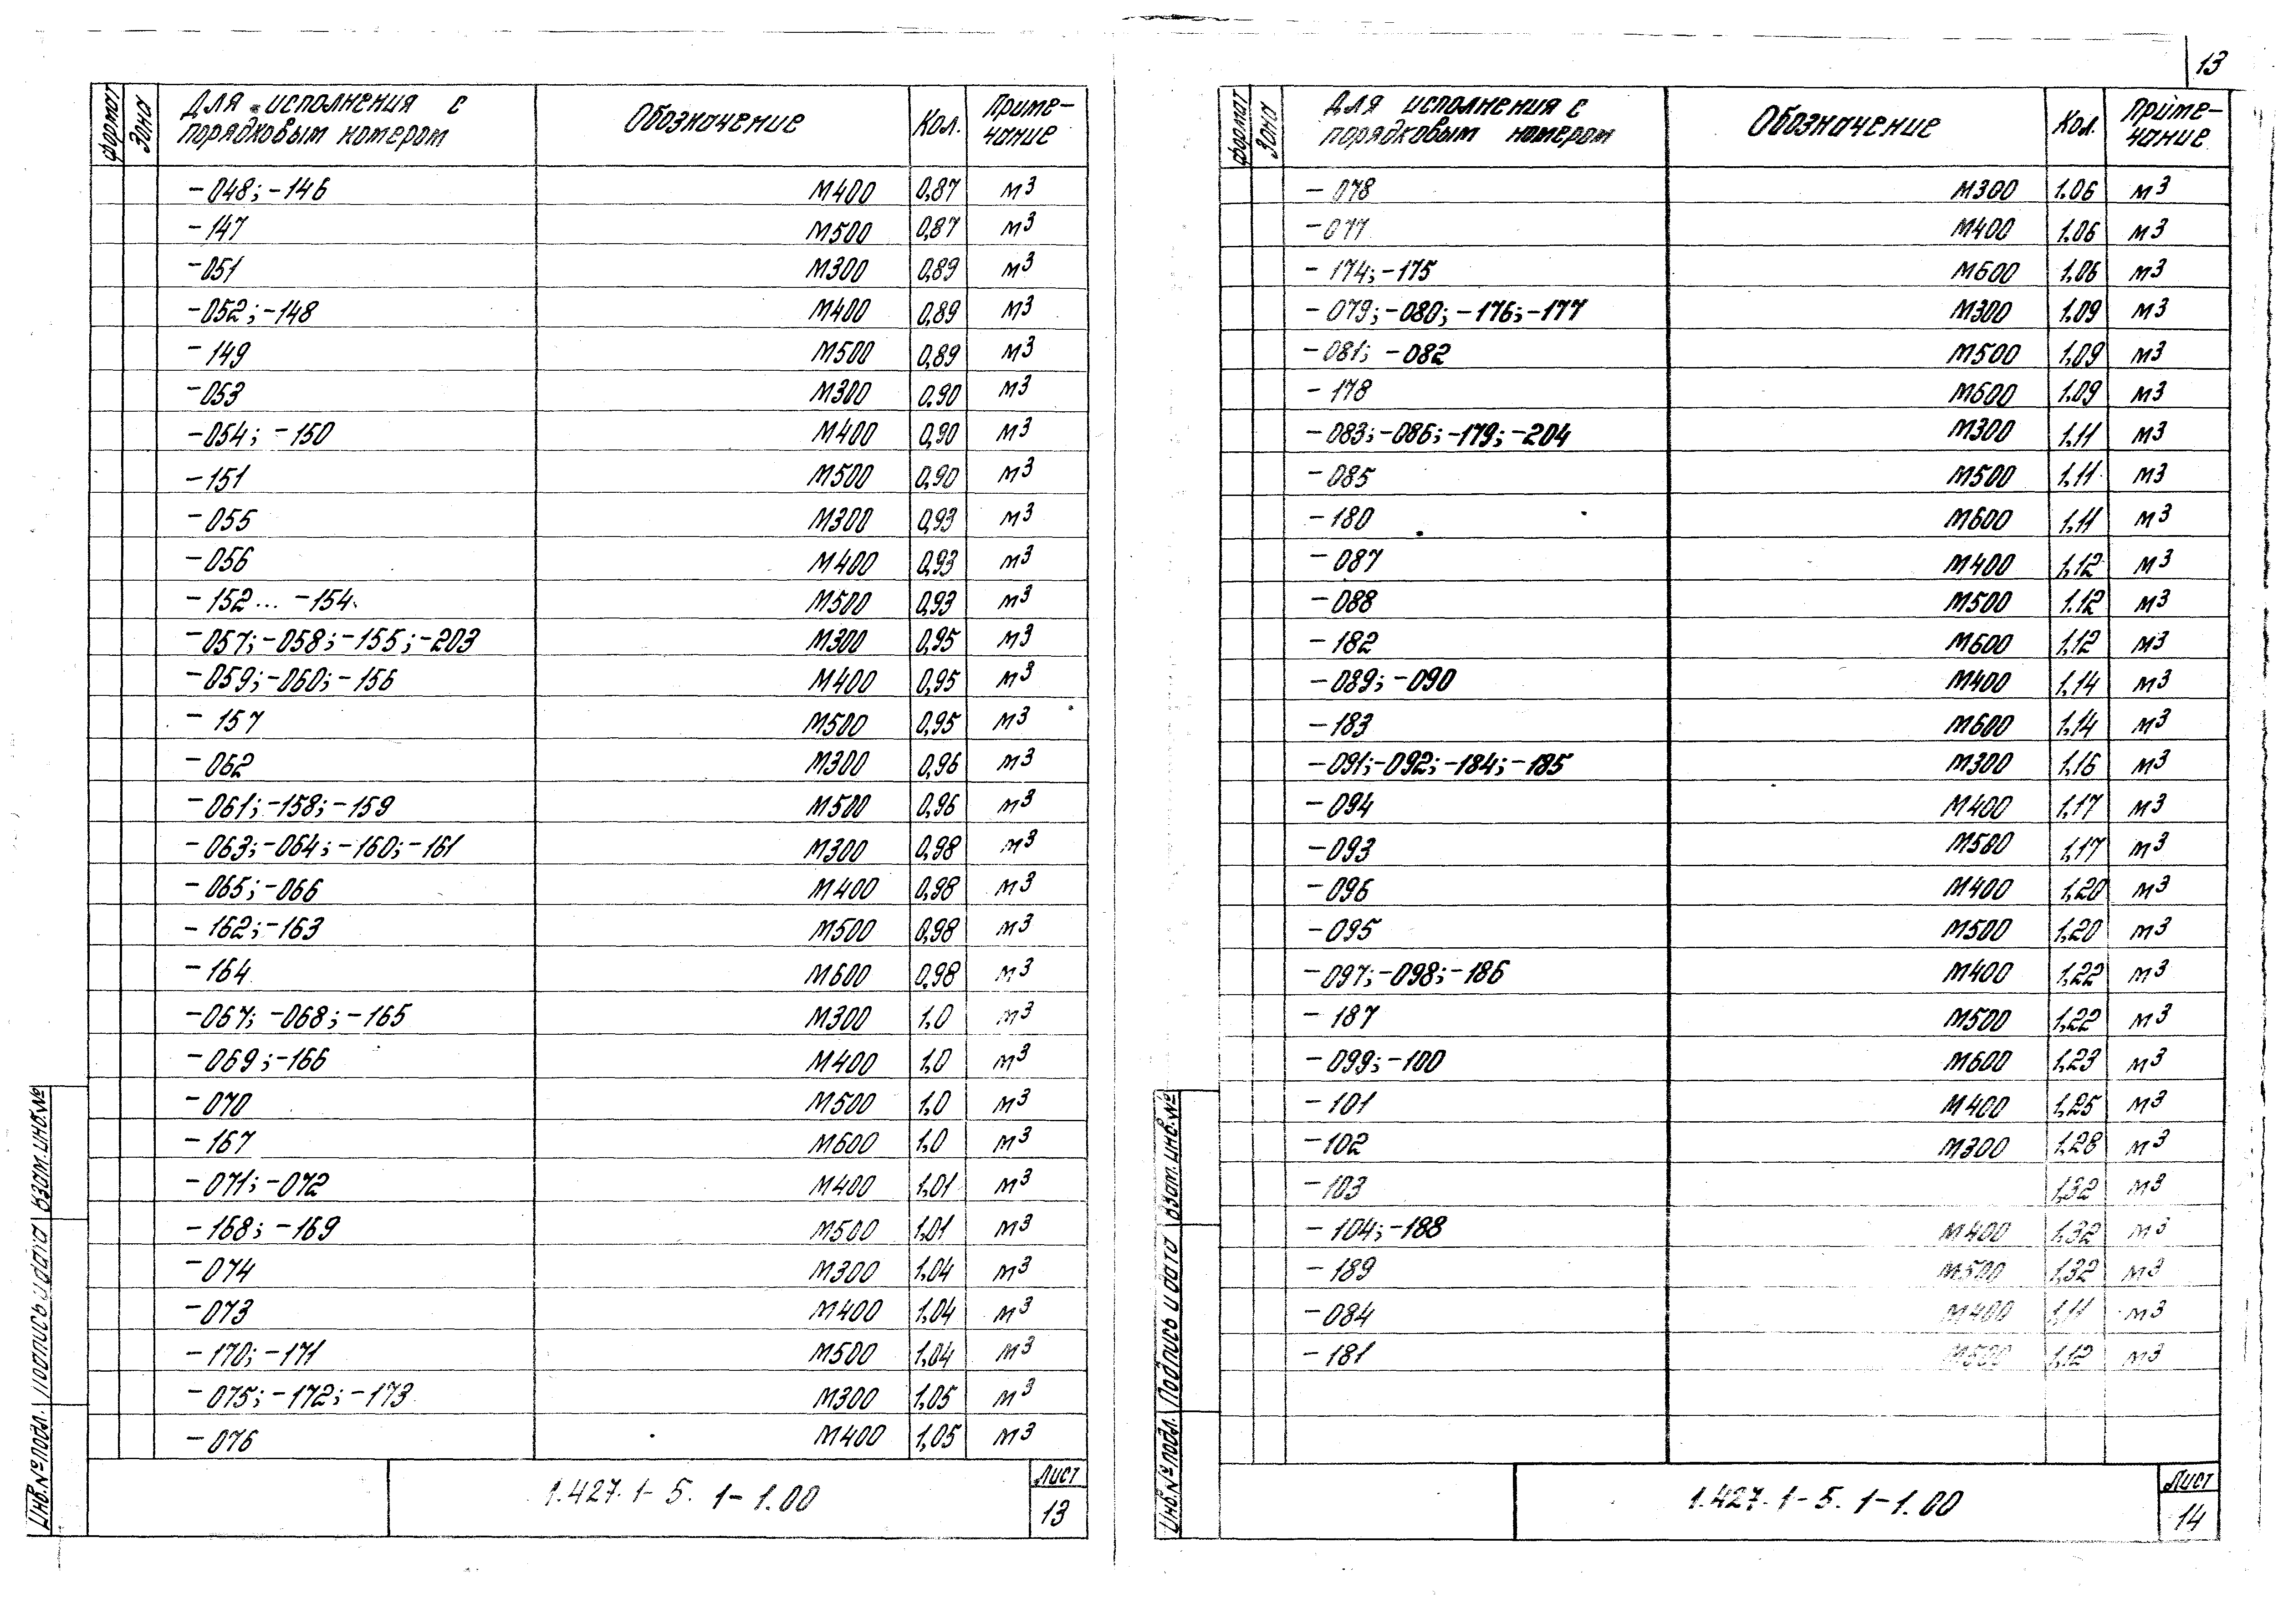 формат Зона Для исполнения с порядковым номером Обозначение Кол. Приме-чание
-048; -146 М400 0,87 м3
-147 М500 0,87 м3
-051 М300 0,89 м3
-052; -148 М400 0,89 м3
-149 М500 0,89 м3
-053 М300 0,90 м3
-054; -150 М400 0,90 м3
-151 М500 0,90 м3
-055 М300 0,93 м3
-056 М400 0,93 м3
-152... -154 М500 0,93 м3
-057; -058; -155; -203 М300 0,95 м3
-059; -060; -156 М400 0,95 м3
-157 М500 0,95 м3
-062 М300 0,96 м3
-061; -158; -159 М500 0,96 м3
-063; -064; -160; -161 М300 0,98 м3
-065; -066 М400 0,98 м3
-162; -163 М500 0,98 м3
-164 М600 0,98 м3
-067; -068; -165 М300 1.0 м3
-069; -166 М400 1,0 м3
-070 М500 1.0 м3
-167 М600 1.0 м3
-071; -072 М400 1,01 м3
-168; -169 М500 1,01 м3
-074 М300 1,04 м3
-073 М400 1,04 м3
-170; -171 М500 1,04 м3
-075; -172; -173 М300 1,05 м3
-076 М400 1,05 м3
1.427.1-5. 1-1.00
Лист
13
Инв.№ подл. Подпись и дата Взам.инв.№
13
формат Зона Для исполнения с порядковым номером Обозначение Кол. Приме-чание
-078 М300 1.06 м3
-077 М400 1.06 м3
-174; -175 М600 1.06 м3
-079; -080; -176; -177 М300 1.09 м3
-081; -082 М500 1.09 м3
-178 М600 1.09 м3
-083; -086; -179; -204 М300 1.11 м3
-085 М500 1.11 м3
-180 М600 1.11 м3
-087 М400 1,12 м3
-088 М500 1.12 м3
-182 М600 1,12 м3
-089; -090 М400 1,14 м3
-183 М600 1,14 м3
-091; -092; -184; -185 М300 1,16 м3
-094 М400 1,17 м3
-093 М500 1,17 м3
-096 М400 1,20 м3
-095 М500 1,20 м3
-097; -098; -186 М400 1,22 м3
-187 М500 1,22 м3
-099; -100 М600 1,23 м3
-101 М400 1,25 м3
-102 М300 1,28 м3
-103 1,32 м3
-104; -188 М400 1,32 м3
-189 М500 1,32 м3
-084 М400 1,11 м3
-181 М500 1,12 м3
1.427.1-5. 1-1.00
Лист
14
Инв.№ подл. Подпись и дата Взам.инв.№